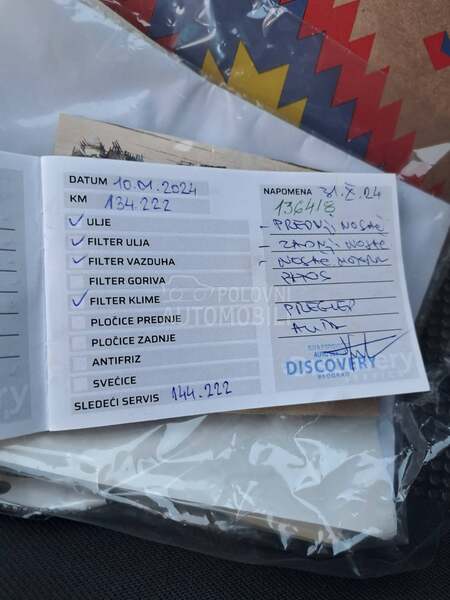 DATUM 10.01.2024
KM 134.222
ULJE
FILTER ULJA
FILTER VAZDUHA
FILTER GORIVA
FILTER KLIME
PLOČICE PREDNJE
PLOČICE ZADNJE
ANTIFRIZ
SVEĆICE
SLEDEĆI SERVIS 144.222
NAPOMENA 31.X.24
136418
- PREDNJI NOSAČ
- ZADNJI NOSAČ
- NOSAČ MOTORA
PREGLED
AUTA
DISCOVERY
BEOGRAD
POLOVNI
AUTOMOBILI